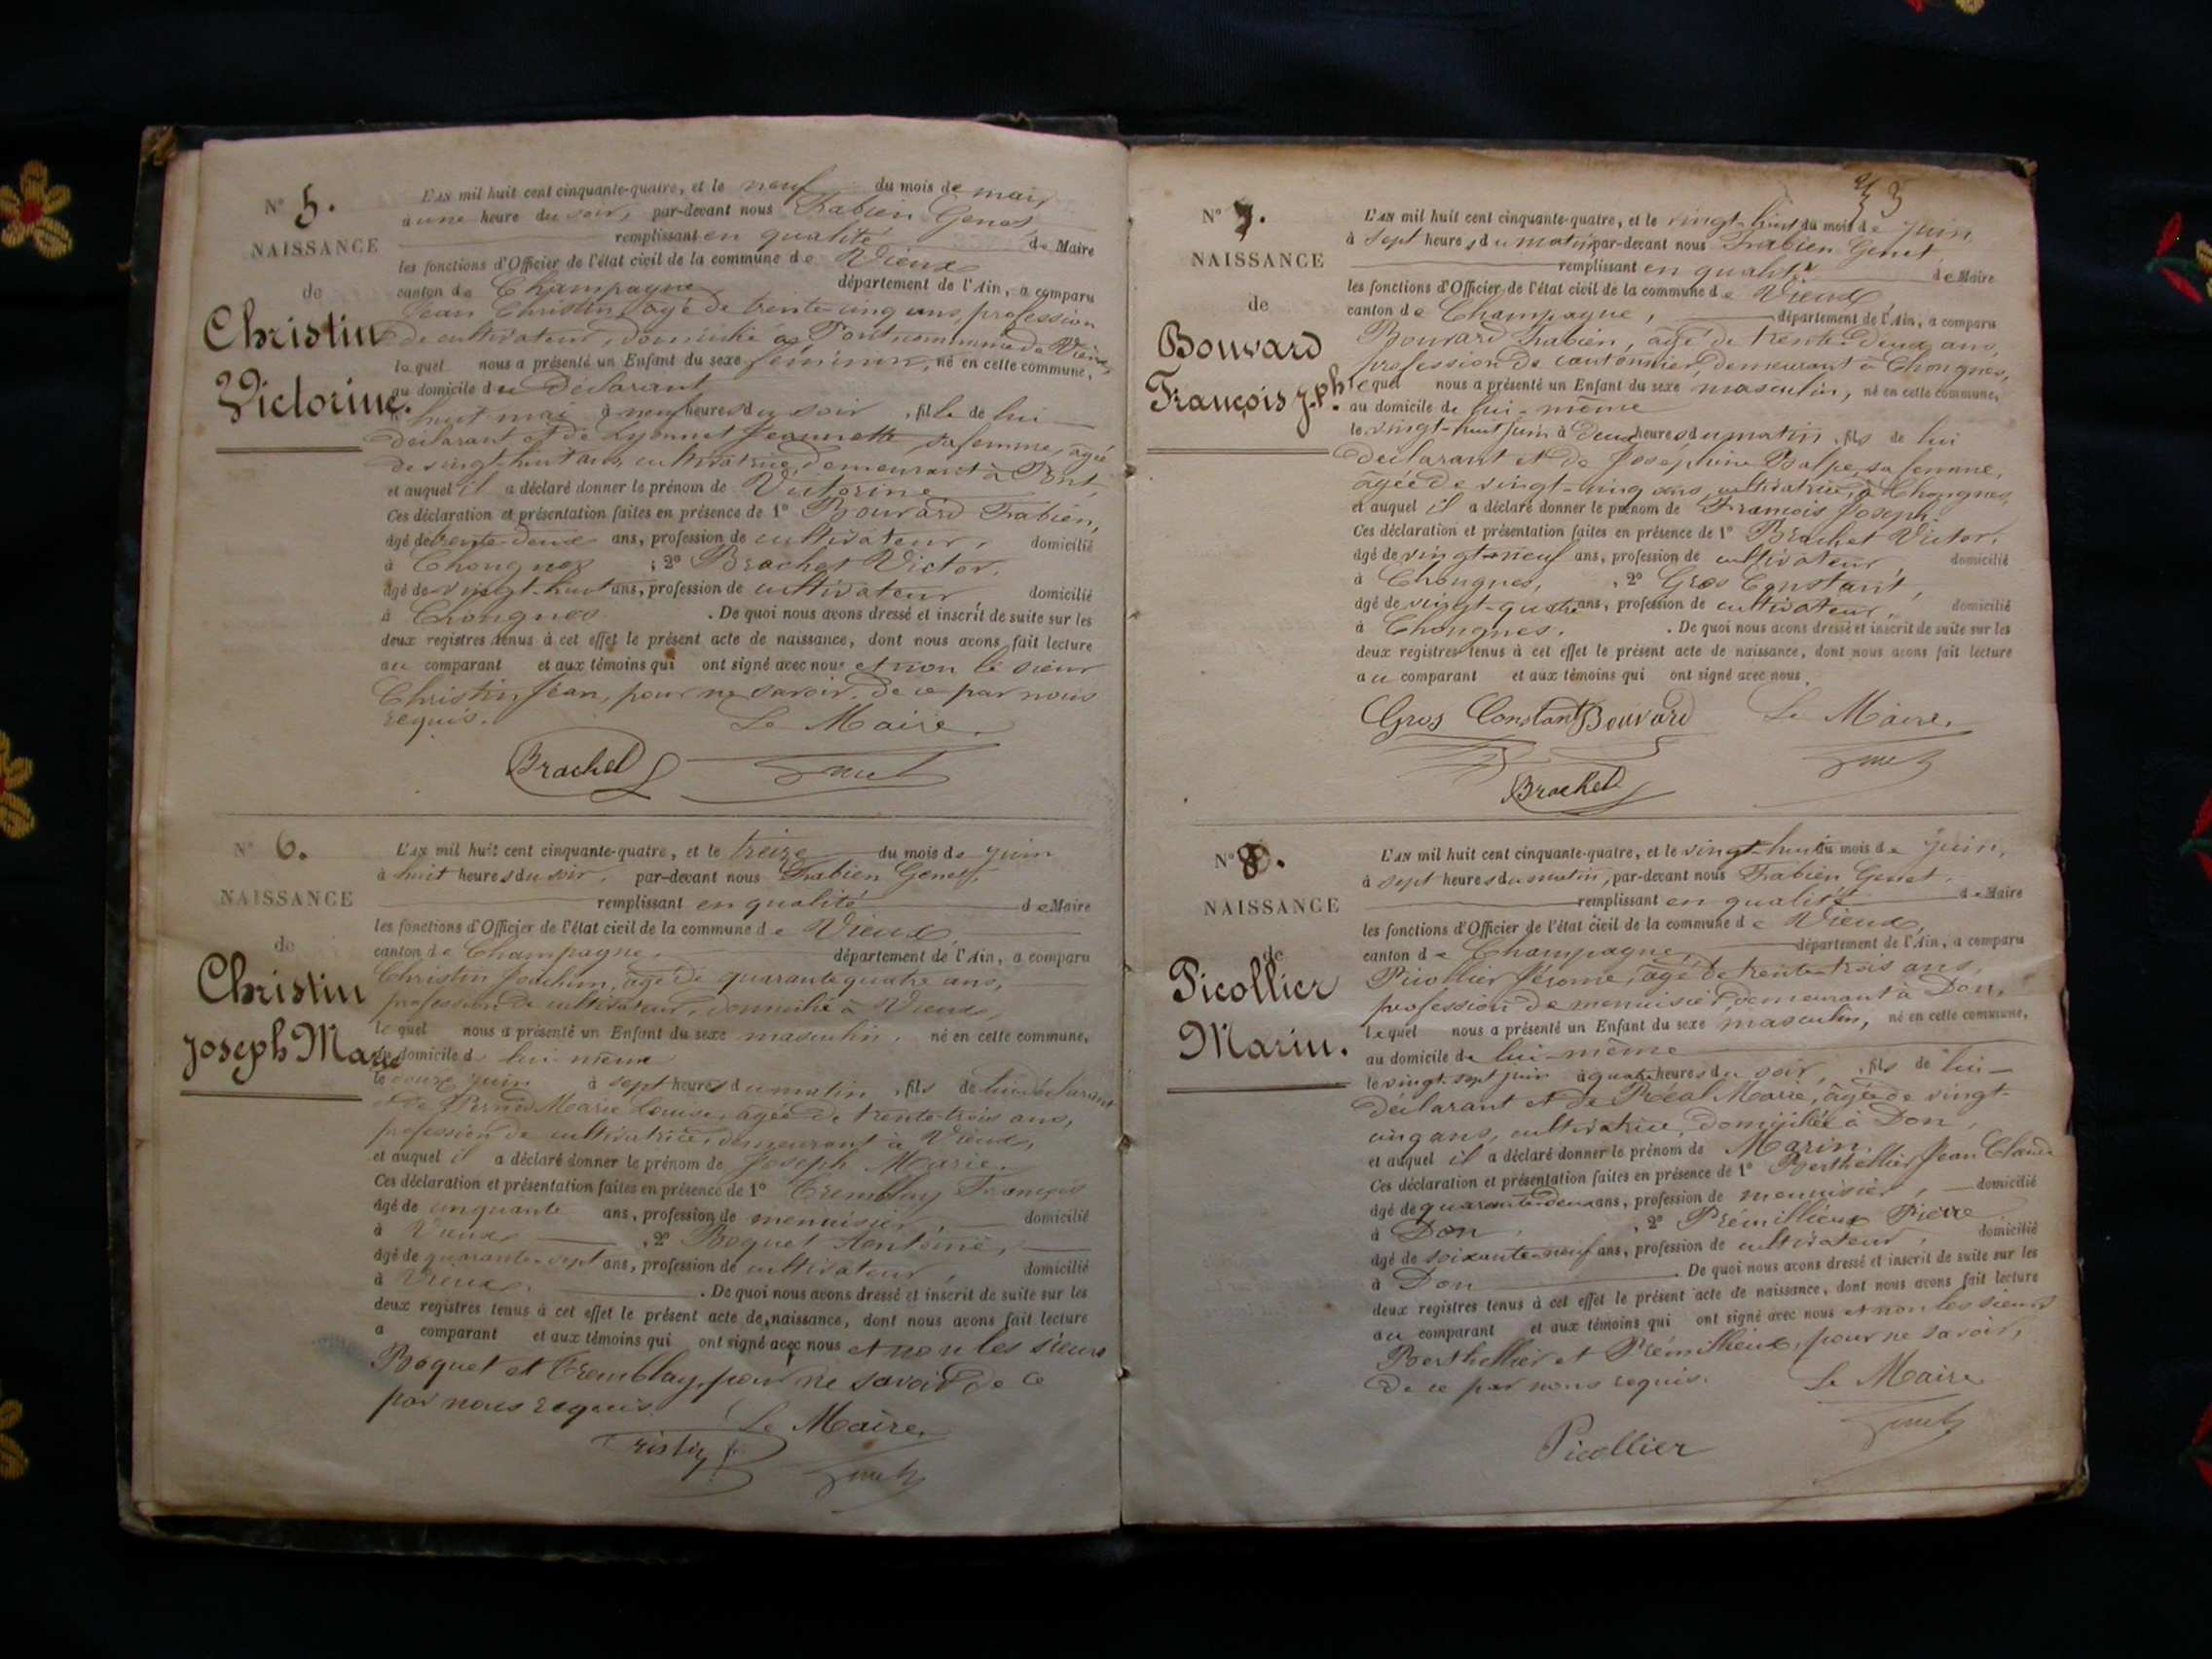 N° 5.
NAISSANCE
de
Christin
Victorine.
L'AN mil huit cent cinquante-quatre, et le neuf du mois de mai,
à une heure du soir, par-devant nous Fabien Genet
remplissant en qualité de Maire
les fonctions d'Officier de l'état civil de la commune de Vieux
canton de Champagne département de l'Ain, a comparu
Jean Christin, âgé de trente-cinq ans, profession
de cultivateur, domicilié à Pont commune de Vieux,
lequel nous a présenté un Enfant du sexe féminin, né en cette commune,
au domicile du Déclarant
le huit mai à neuf heures du soir, fille de lui
déclarant et de Lyonnet Jeannette sa femme, âgée
de vingt-huit ans, cultivatrice, demeurant à Pont,
et auquel il a déclaré donner le prénom de Victorine
Ces déclaration et présentation faites en présence de 1° Bouvard Fabien,
âgé de trente-deux ans, profession de cultivateur, domicilié
à Chongnes ; 2° Brachet Victor.
âgé de vingt-huit ans, profession de cultivateur domicilié
à Chongnes . De quoi nous avons dressé et inscrit de suite sur les
deux registres tenus à cet effet le présent acte de naissance, dont nous avons fait lecture
au comparant et aux témoins qui ont signé avec nous et non le sieur
Christin Jean, pour ne savoir, de ce par nous
requis. Le Maire.
Brachet Genet
N° 6.
NAISSANCE
de
Christin
Joseph Marie
L'AN mil huit cent cinquante-quatre, et le treize du mois de juin
à huit heures du soir, par-devant nous Fabien Genet,
remplissant en qualité de Maire
les fonctions d'Officier de l'état civil de la commune de Vieux,
canton de Champagne, département de l'Ain, a comparu
Christin Joachim, âgé de quarante quatre ans,
profession de cultivateur, domicilié à Vieux,
lequel nous a présenté un Enfant du sexe masculin, né en cette commune,
au domicile de lui-même
le douze juin à sept heures du matin, fils de lui déclarant
et de Marie Louise, âgée de trente-trois ans,
profession de cultivatrice, demeurant à Vieux,
et auquel il a déclaré donner le prénom de Joseph Marie.
Ces déclaration et présentation faites en présence de 1° Tremblay François
âgé de cinquante ans, profession de menuisier, domicilié
à Vieux , 2° Boquet Antoine,
âgé de quarante-sept ans, profession de cultivateur, domicilié
à Vieux. . De quoi nous avons dressé et inscrit de suite sur les
deux registres tenus à cet effet le présent acte de naissance, dont nous avons fait lecture
a comparant et aux témoins qui ont signé avec nous et non les sieurs
Boquet et Tremblay, pour ne savoir de ce
par nous requis. Le Maire.
Genet
N° 7.
NAISSANCE
de
Bouvard
François J.ph
L'AN mil huit cent cinquante-quatre, et le vingt-huit du mois de juin
à sept heures du matin par-devant nous Fabien Genet
remplissant en qualité de Maire
les fonctions d'Officier de l'état civil de la commune de Vieux,
canton de Champagne, département de l'Ain, a comparu
Bouvard Fabien, âgé de trente-deux ans,
profession de cantonnier, demeurant à Chongnes,
lequel nous a présenté un Enfant du sexe masculin, né en cette commune,
au domicile de lui-même
le vingt-huit juin à deux heures du matin, fils de lui
déclarant et de Joséphine Balpe, sa femme,
âgée de vingt-cinq ans, cultivatrice, à Chongnes,
et auquel il a déclaré donner le prénom de François Joseph.
Ces déclaration et présentation faites en présence de 1° Brachet Victor,
âgé de vingt-neuf ans, profession de cultivateur, domicilié
à Chongnes, , 2° Gros Constant,
âgé de vingt-quatre ans, profession de cultivateur, domicilié
à Chongnes. . De quoi nous avons dressé et inscrit de suite sur les
deux registres tenus à cet effet le présent acte de naissance, dont nous avons fait lecture
au comparant et aux témoins qui ont signé avec nous.
Gros Constant Bouvard Le Maire.
Brachet Genet
N° 8.
NAISSANCE
de
Picollier
Marin.
L'AN mil huit cent cinquante-quatre, et le vingt-huit du mois de juin,
à sept heures du matin, par-devant nous Fabien Genet.
remplissant en qualité de Maire
les fonctions d'Officier de l'état civil de la commune de Vieux,
canton de Champagne, département de l'Ain, a comparu
Picollier Jérome, âgé de trente-trois ans,
profession de menuisier, demeurant à Don,
lequel nous a présenté un Enfant du sexe masculin, né en cette commune,
au domicile de lui-même
le vingt-sept juin à quatre heures du soir, fils de lui
déclarant et de Réal Marie, âgée de vingt-
cinq ans, cultivatrice, domiciliée à Don,
et auquel il a déclaré donner le prénom de Marin,
Ces déclaration et présentation faites en présence de 1° Berthellier Jean Claude
âgé de quarante-deux ans, profession de menuisier, domicilié
à Don , 2° Prémillieux Pierre
âgé de soixante-neuf ans, profession de cultivateur, domicilié
à Don . De quoi nous avons dressé et inscrit de suite sur les
deux registres tenus à cet effet le présent acte de naissance, dont nous avons fait lecture
au comparant et aux témoins qui ont signé avec nous et non les sieurs
Berthellier et Prémillieux, pour ne savoir,
de ce par nous requis. Le Maire
Picollier Genet